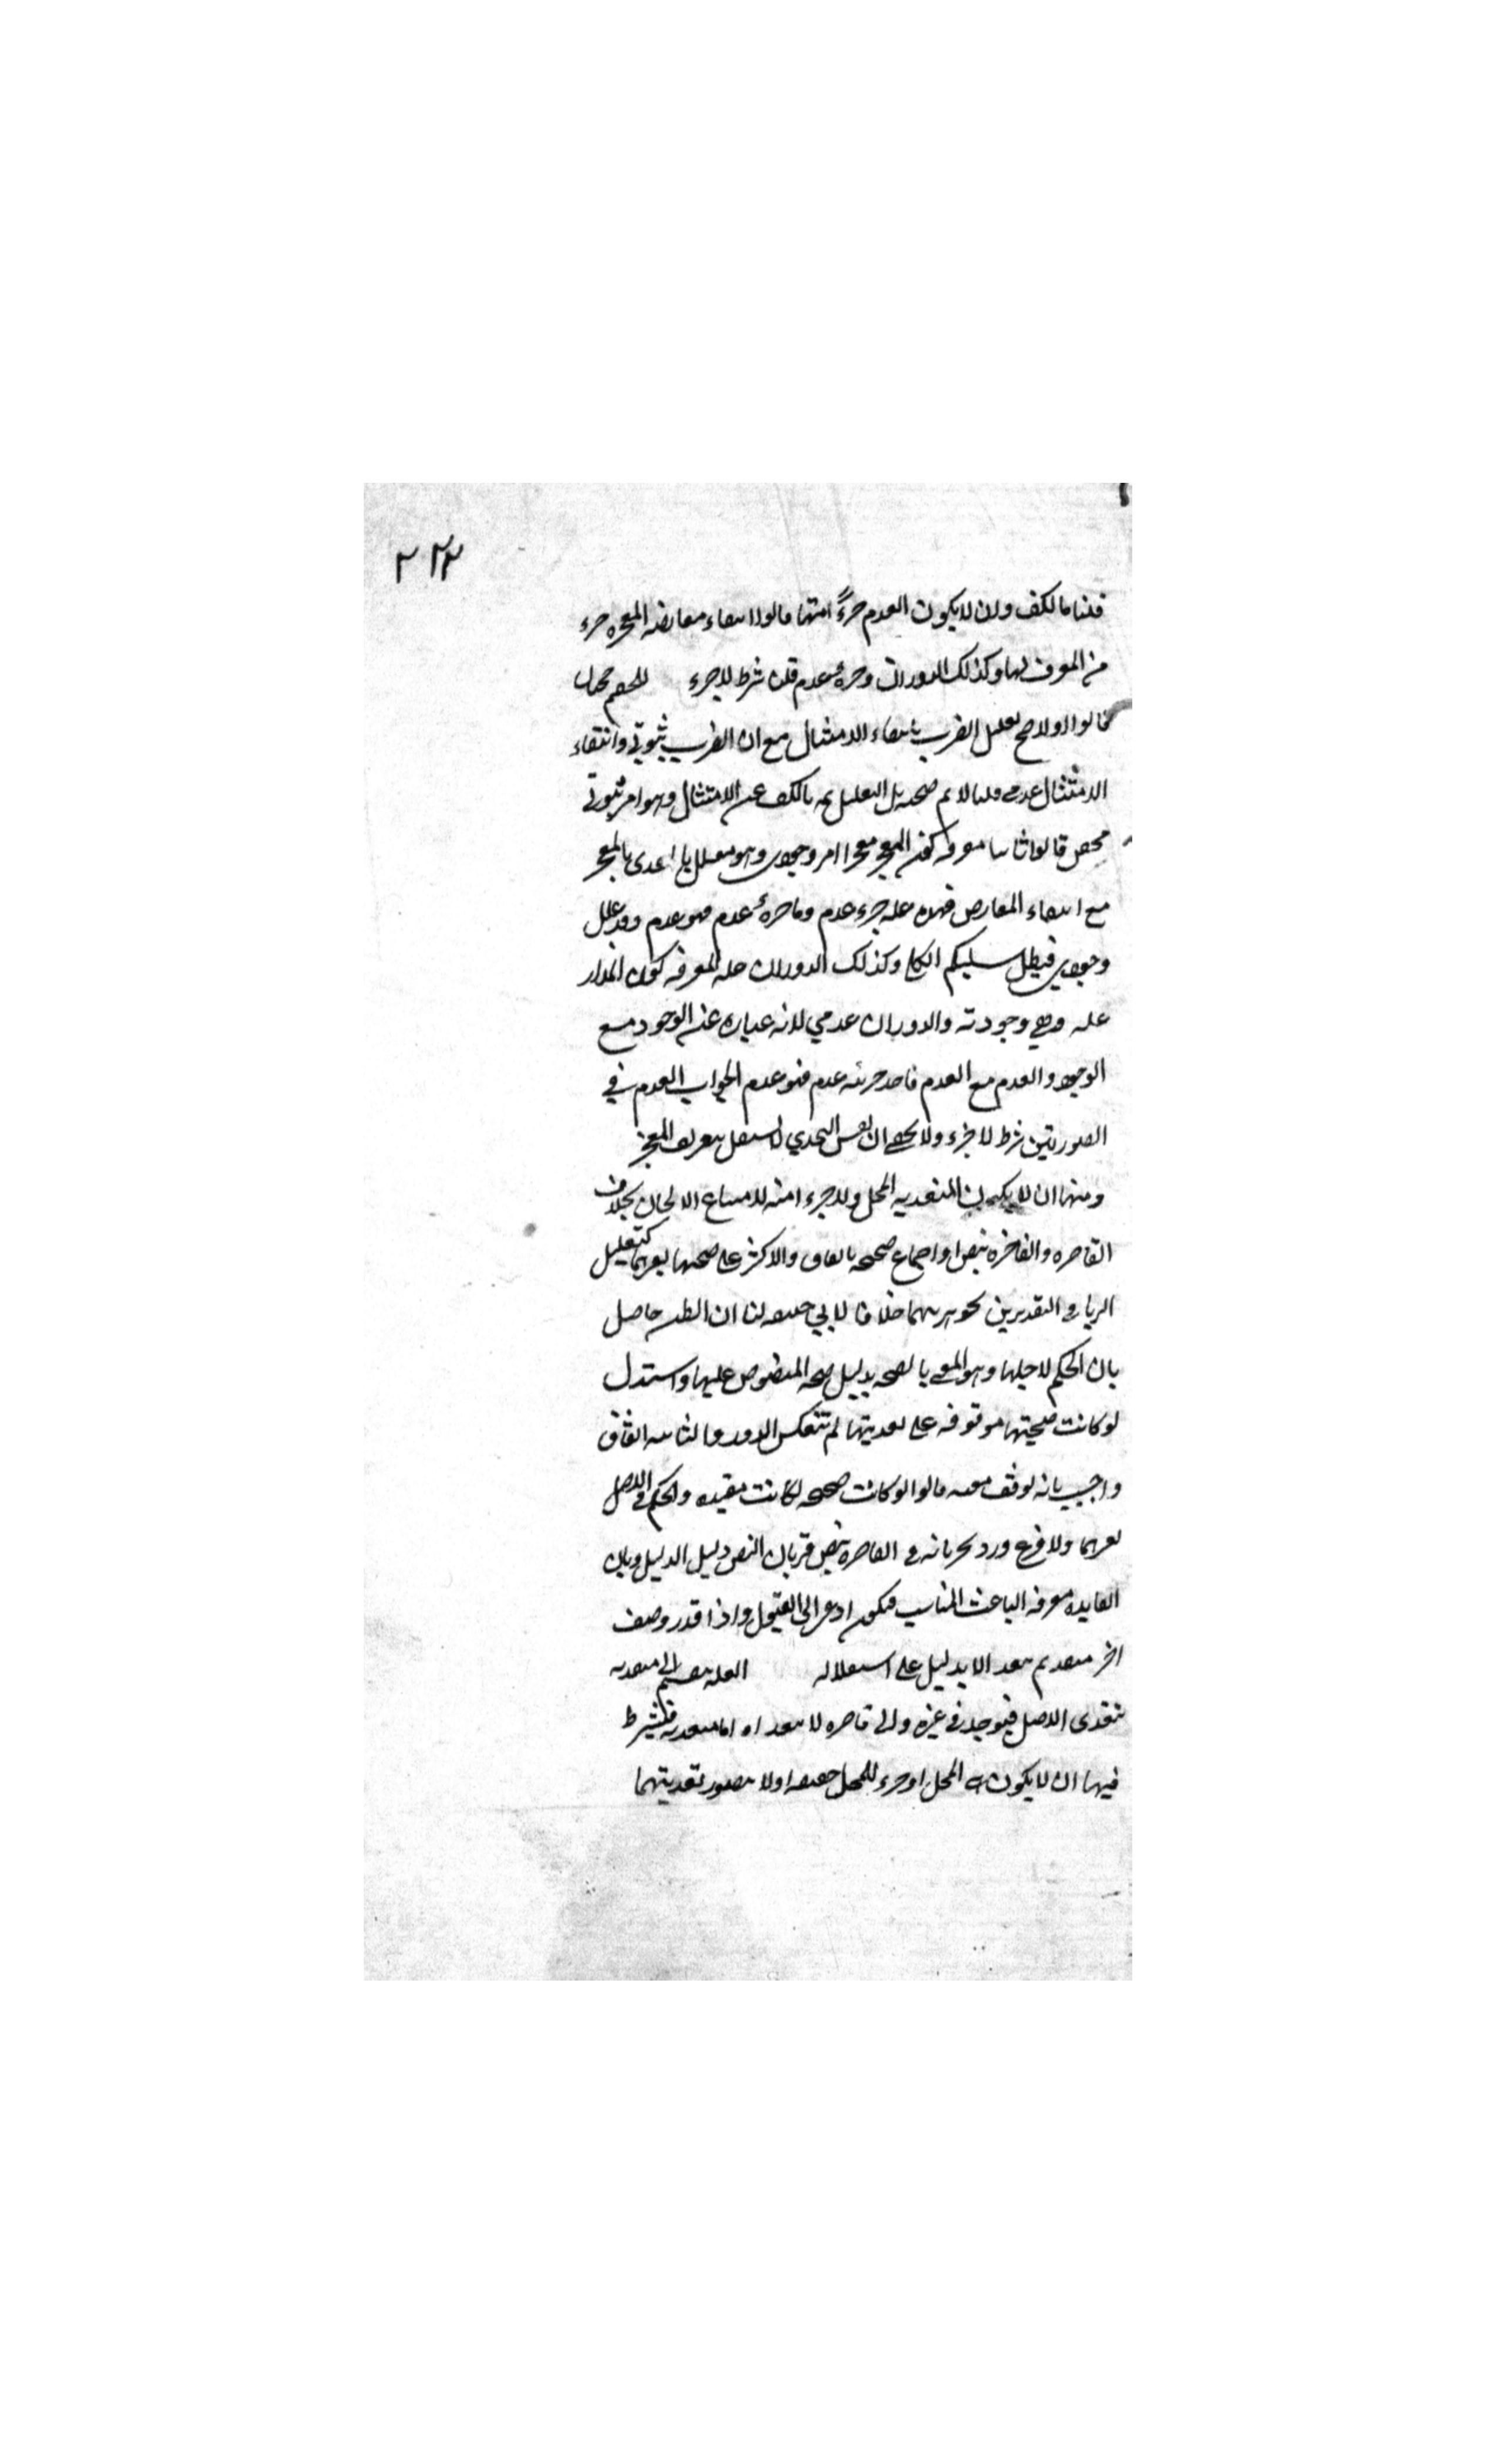 ٢٢٢
قلنا بالكف وان لا يكون العدم جزءً منها قالوا انتفاء معارضة المعجزة جزء
من المعرف لها وكذلك الدوران وجزؤه عدم قلنا شرط لا جزء للخصم
قالوا اولا صح تعليل الضرب بانتفاء الامتثال مع ان الضرب ثبوتي وانتفاء
الامتثال عدمي قلنا لا نم صحته بل التعليل بالكف عن الامتثال وهو امر ثبوتي
محض قالوا ثانيا معرفة كون المعجز معجزا امر وجودي وهو معلل بالتحدي بالمعجز
مع انتفاء المعارض فهذه علة جزء عدم وما جزؤه عدم فهو عدم وقد علل
وجودي فبطل سلبكم الكلي وكذلك الدوران علة لمعرفة كون المدار
علة وهي وجودية والدوران عدمي لانه عبارة عن الوجود مع
الوجود والعدم مع العدم فاحد جزئيه عدم فهو عدم الجواب العدم في
الصورتين شرط لا جزء ولا يخفى ان نفس التحدي لا يستقل بتعريف المعجز
ومنها ان لا يكون المتعدية المحل ولا جزء امنه لامتناع الالحاق بخلاف
القاصرة والقاصرة بنص او اجماع صحيحة باتفاق والاكثر على صحتها بغيرهما كتعليل
الربا في النقدين بجوهريتهما خلافا لابي حنيفة لنا ان الظن حاصل
بان الحكم لاجلها وهو المعني بالصحة بدليل صحة المنصوص عليها واستدل
لو كانت صحتها موقوفة على تعديتها لم تنعكس للدور والثانية اتفاق
واجيب بانه توقف معية قالوا لو كانت صحيحة لكانت مفيدة والحكم في الاصل
بغيرها ولا فرع ورد بجريانه في القاصرة بنص وبان النص دليل الدليل وبان
الفايدة معرفة الباعث المناسب فيكون ادعى الى القبول واذا قدر وصف
اخر متعد لم يتعد الا بدليل على استقلاله العلة تنقسم الى متعدية
تتعدى الاصل فيوجد في غيره والى قاصرة لا تتعداه اما المتعدية فيشترط
فيها ان لا يكون المحل او جزء للمحل حقيقة اولا يتصور تعديتهما